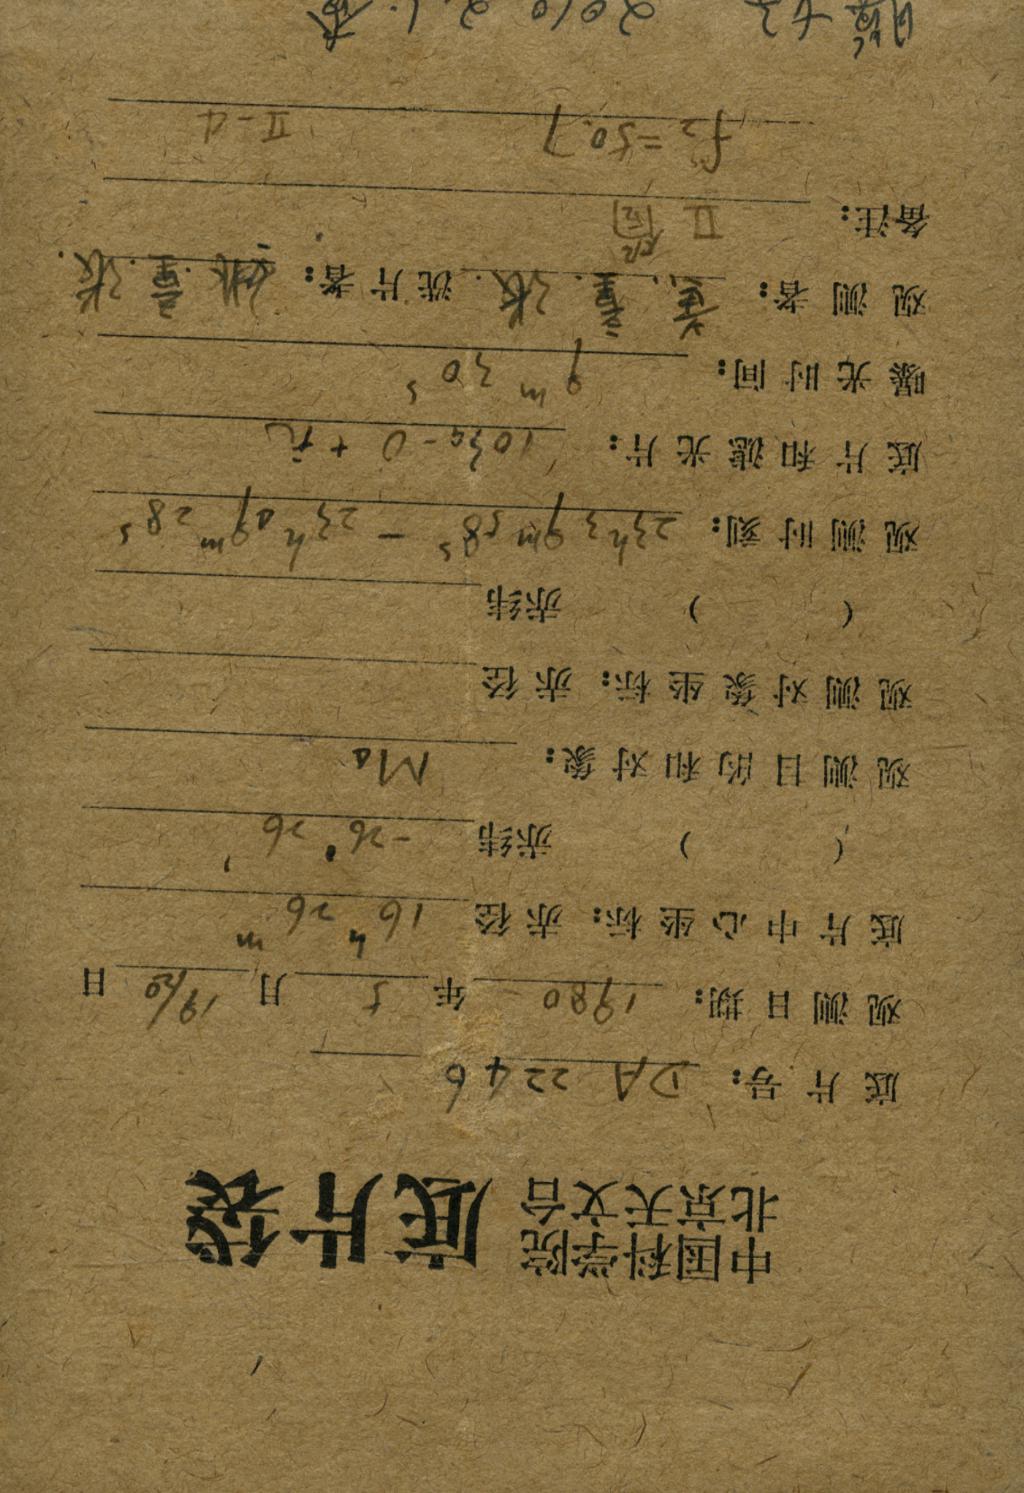 中国科学院
北京天文台 底片袋
底片号: DA 2246
观测日期: 1980 年 5 月 19/20 日
底片中心坐标: 赤径 16h 26m
( ) 赤纬 -26° 26′
观测目的和对象: Ma
观测对象坐标: 赤径
( ) 赤纬
观测时刻: 23h39m58s - 23h49m28s
底片和滤光片: 103a-O +
曝光时间: 9m 30s
观测者: 黄. 童. 张. 洗片者: 姚. 童. 张.
备注: II
f2=50.7 II-4
2010.2.1.